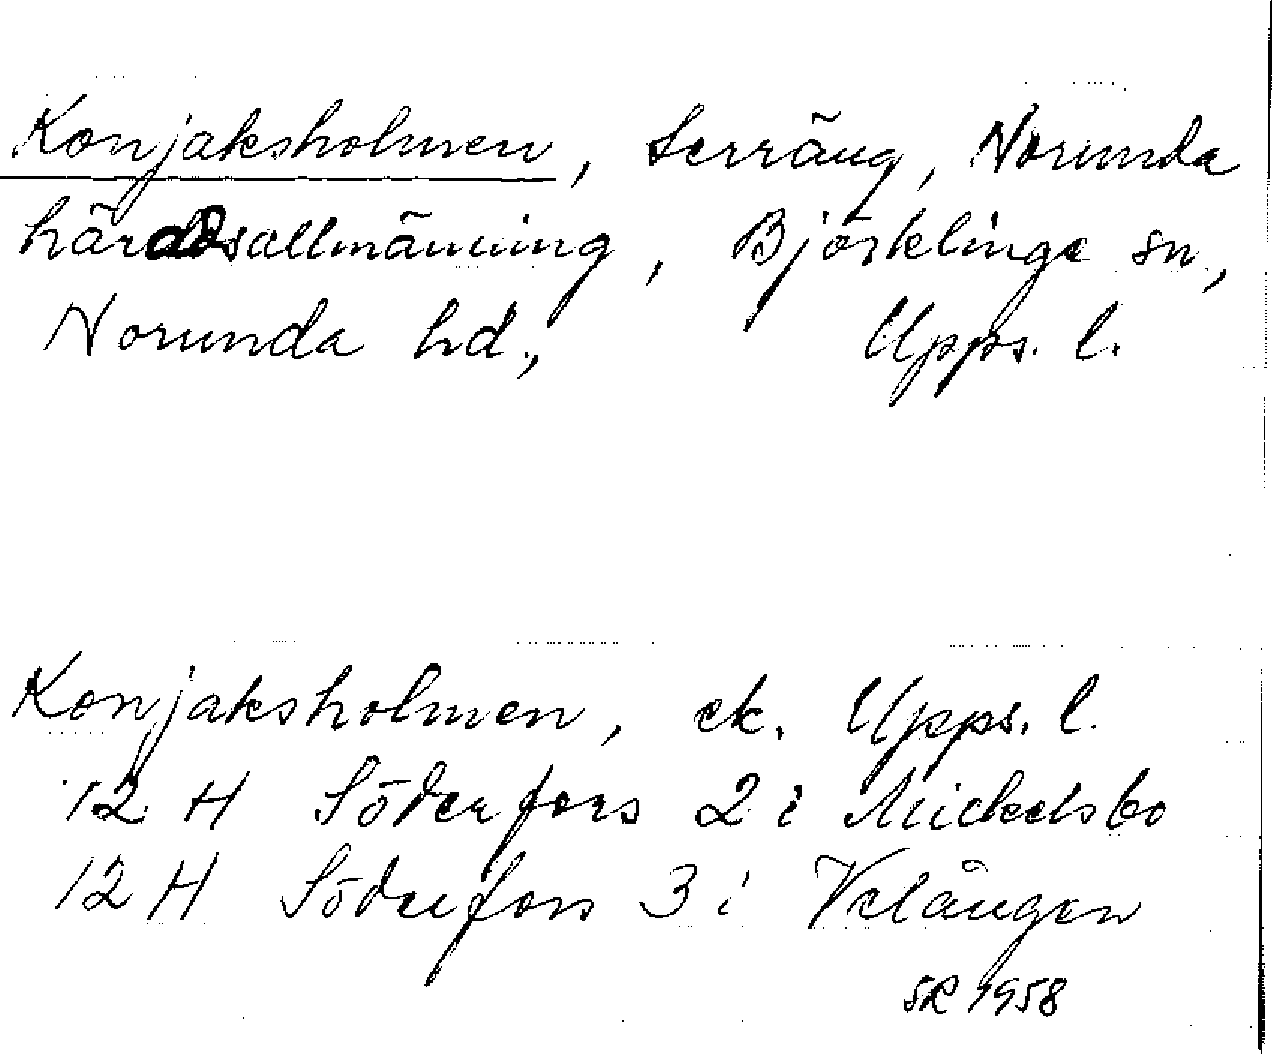 Konjaksholmen, terräng, Norunda
häradsallmänning, Björklinge sn,
Norunda hd., Upps. l.
Konjaksholmen, ek. Upps. l.
12 H Söderfors 2 i Mickelsbo
12 H Söderfors 3 i Velängen
SR 1958